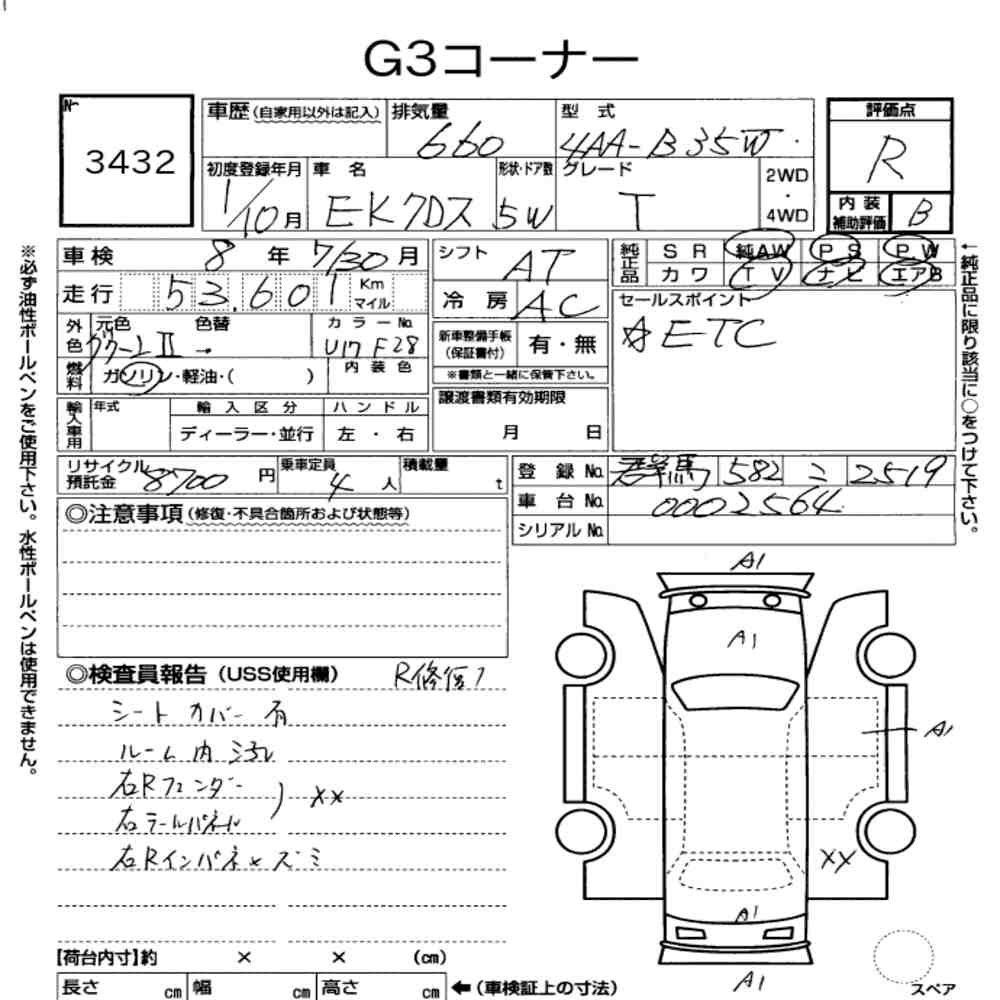 G3コーナー
No 3432
車歴(自家用以外は記入) 排気量 660 型式 4AA-B35W
評価点 R
初度登録年月 1/10月 車名 EKクロス 形状・ドア数 5W グレード T 2WD・4WD
内装補助評価 B
車検 8年 7/30月
走行 53,601 Km マイル
外色 元色 色替 カラーNo. U17 F28
II →
燃料 ガソリン・軽油・( ) 内装色
輸入車用 年式 輸入区分 ハンドル
ディーラー・並行 左・右
シフト AT
冷房 AC
新車整備手帳(保証書付) 有・無
※書類と一緒に保管下さい。
譲渡書類有効期限
月 日
純正品 SR 純AW PS PW
カワ TV ナビ エアB
セールスポイント
☆ETC
リサイクル預託金 8700円 乗車定員 4人 積載量 t
登録No. 群馬 582 こ 2519
車台No. 0002564
シリアルNo.
◎注意事項(修復・不具合箇所および状態等)
◎検査員報告(USS使用欄) R修復7
シートカバー有
ルーム内汚れ
右Rフェンダー
右テールパネル ) XX
右Rインパネ
A1
A1
A1
XX
A1
A1
【荷台内寸】約 × × (cm)
長さ cm 幅 cm 高さ cm ←(車検証上の寸法)
スペア
※必ず油性ボールペンをご使用下さい。水性ボールペンは使用できません。
←純正品に限り該当に○をつけて下さい。